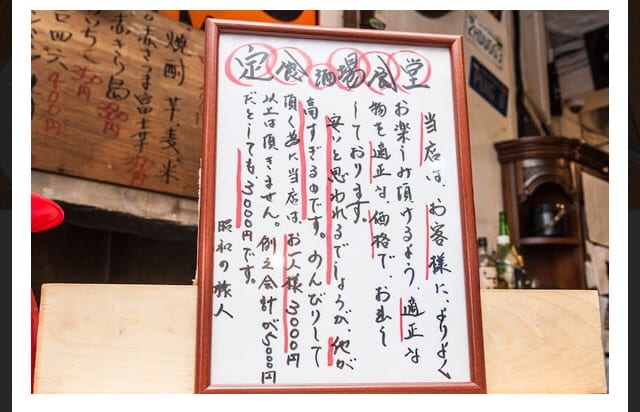 定食酒場食堂
当店は、お客様に、よりよく
お楽しみ頂けるよう、適正な
物を適正な価格でお出し
しております。
安いと思われるでしょうが、他が
高すぎるのです。のんびりして
頂く為に当店は、お一人様3000円
以上は頂きません。例え会計が5000円
だとしても、3000円です。
昭和の旅人
焼酎 芋麦米
400円